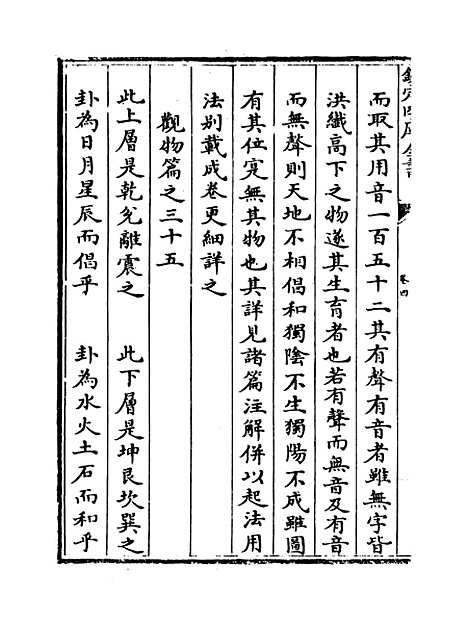 欽定四庫全書
卷四
而取其用音一百五十二其有聲有音者雖無字皆
洪纎高下之物遂其生育者也若有聲而無音及有音
而無聲則天地不相倡和獨陰不生獨陽不成雖圖
有其位寔無其物也其詳見諸篇注解併以起法用
法别載成卷更細詳之
觀物篇之三十五
此上層是乾兊離震之　此下層是坤艮坎巽之
卦為日月星辰而倡乎　卦為水火土石而和乎